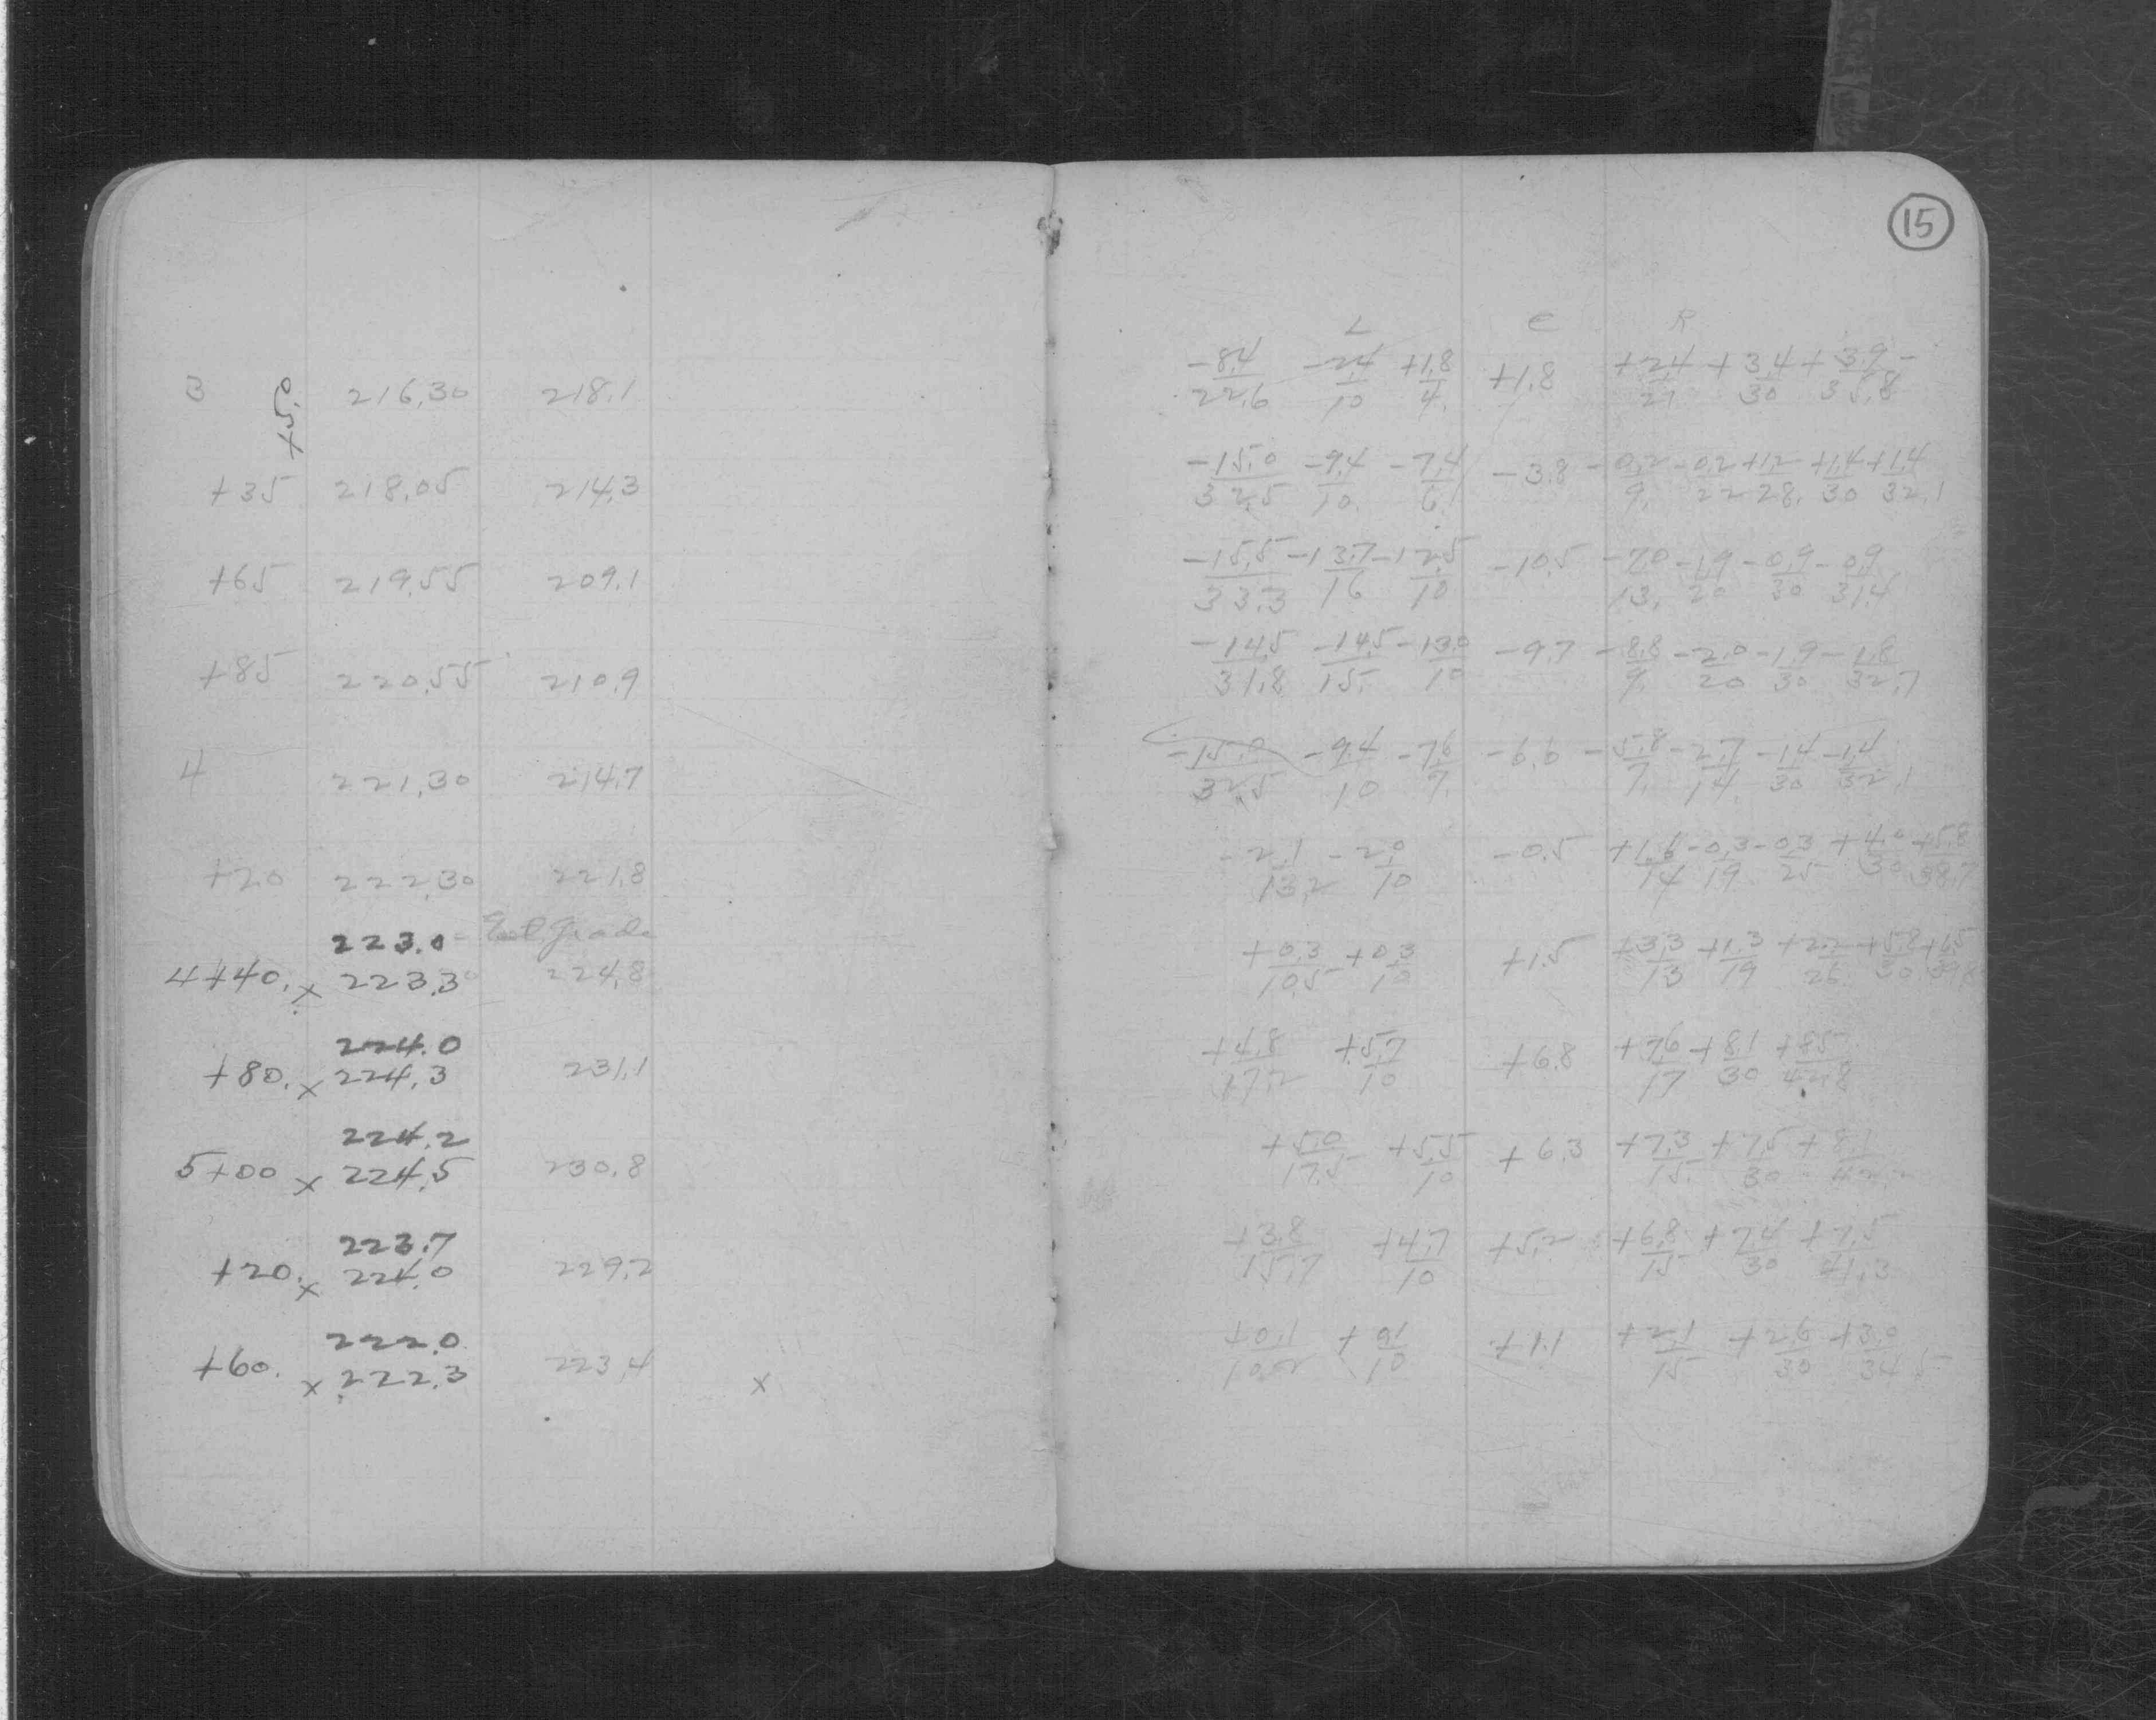 15
L C R
3 216.30 218.1
+5.0
-8.4/22.6 -2.4/10 +1.8/4. +1.8 +2.4/21 +3.4/30 +3.9/35.8 -
+35 218.05 214.3
-15.0/32.5 -9.4/10. -7.4/6. -3.8 -0.2/9. -0.2/22 +1.2/28. +1.4/30 +1.4/32.1
+65 219.55 209.1
-15.5/33.3 -13.7/16 -12.5/10 -10.5 -7.0/13. -1.9/20 -0.9/30 -0.9/31.4
+85 220.55 210.9
-14.5/31.8 -14.5/15. -13.0/10 -9.7 -8.8/9. -2.0/20 -1.9/30 -1.8/32.7
4 221.30 214.7
-15.0/32.5 -9.4/10 -7.6/9. -6.6 -5.8/7. -2.7/14. -1.4/30 -1.4/32.1
+20 222.30 221.8
-2.1/13.2 -2.0/10 -0.5 +1.6/14 -0.3/19 -0.3/25 +4.0/30 +5.8/38.7
223.0 - Grade
4+40. x 223.30 224.8
+0.3/10.5 +0.3/10 +1.5 +3.3/13 +1.3/19 +2.2/26 +5.8/30 +6.5
224.0
+80. x 224.3 231.1
+4.8/17.2 +5.7/10 +6.8 +7.6/17 +8.1/30 +8.5/42.8
224.2
5+00 x 224.5 230.8
+5.0/17.5 +5.5/10 +6.3 +7.3/15. +7.5/30 +8.1
223.7
+20. x 224.0 229.2
+3.8/15.7 +4.7/10 +5.2 +6.8/15 +7.4/30 +7.5/41.3
222.0
+60. x 222.3 223.4 x
+0.1/10.2 +0.1/10 +1.1 +2.1/15 +2.6/30 +3.0/34.5